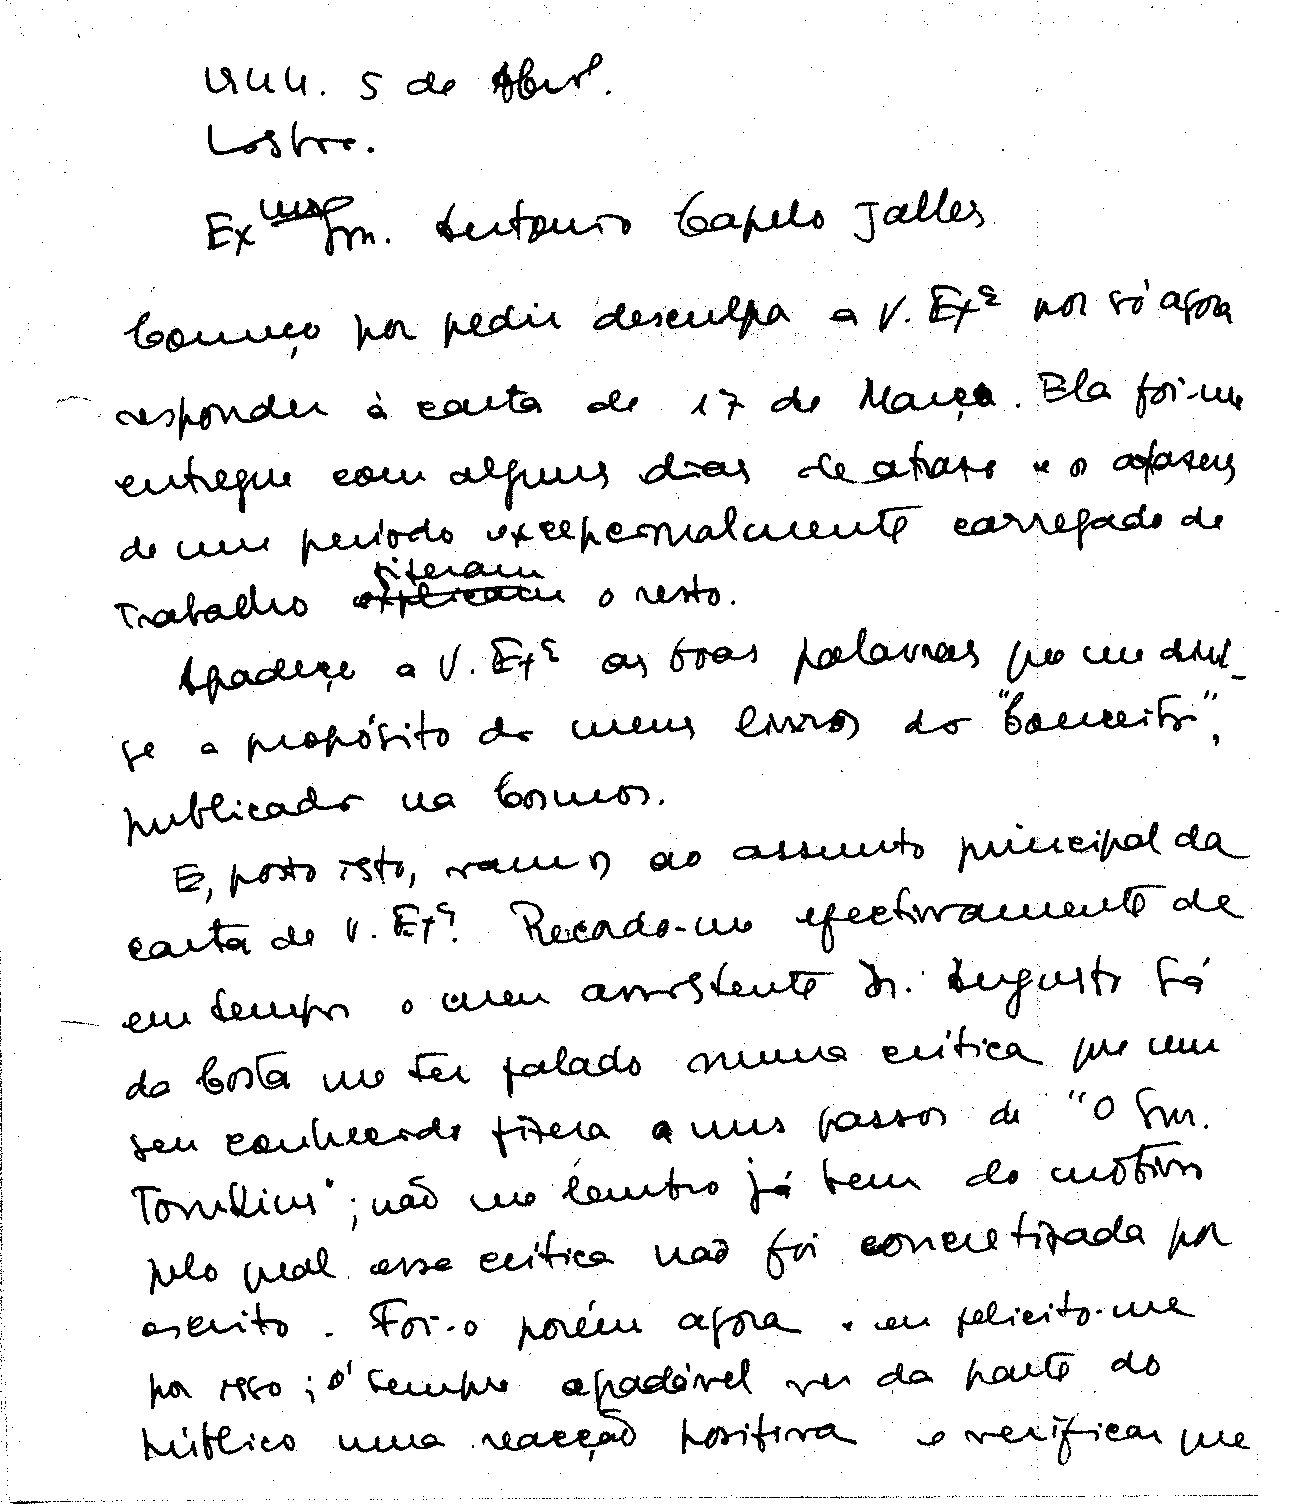 1944. 5 de Abril.
Lisboa.
Exmo Snr. Antonio Capelo Jalles
Começo por pedir desculpa a V. Exª por só agora
responder à carta de 17 de Março. Ela foi-me
entregue com alguns dias de atraso e os afazeres
de um período excepcionalmente carregado de
trabalho fizeram o resto.
Agradeço a V. Exª as boas palavras que me dis-
se a propósito do meus livros do "Conceitos",
publicados na Cosmos.
E, posto isto, vamos ao assunto principal da
carta de V. Exª. Recordo-me efectivamente de
em tempos o meu assistente Dr. Augusto Sá
da Costa me ter falado numa crítica que um
seu conhecido fizera a uns passos de "O Snr.
Tomkins"; não me lembro já bem do motivo
pelo qual essa crítica não foi concretizada por
escrito. Foi-o porém agora e eu felicito-me
por isso; é sempre agradável ver da parte do
público uma reacção positiva e verificar que